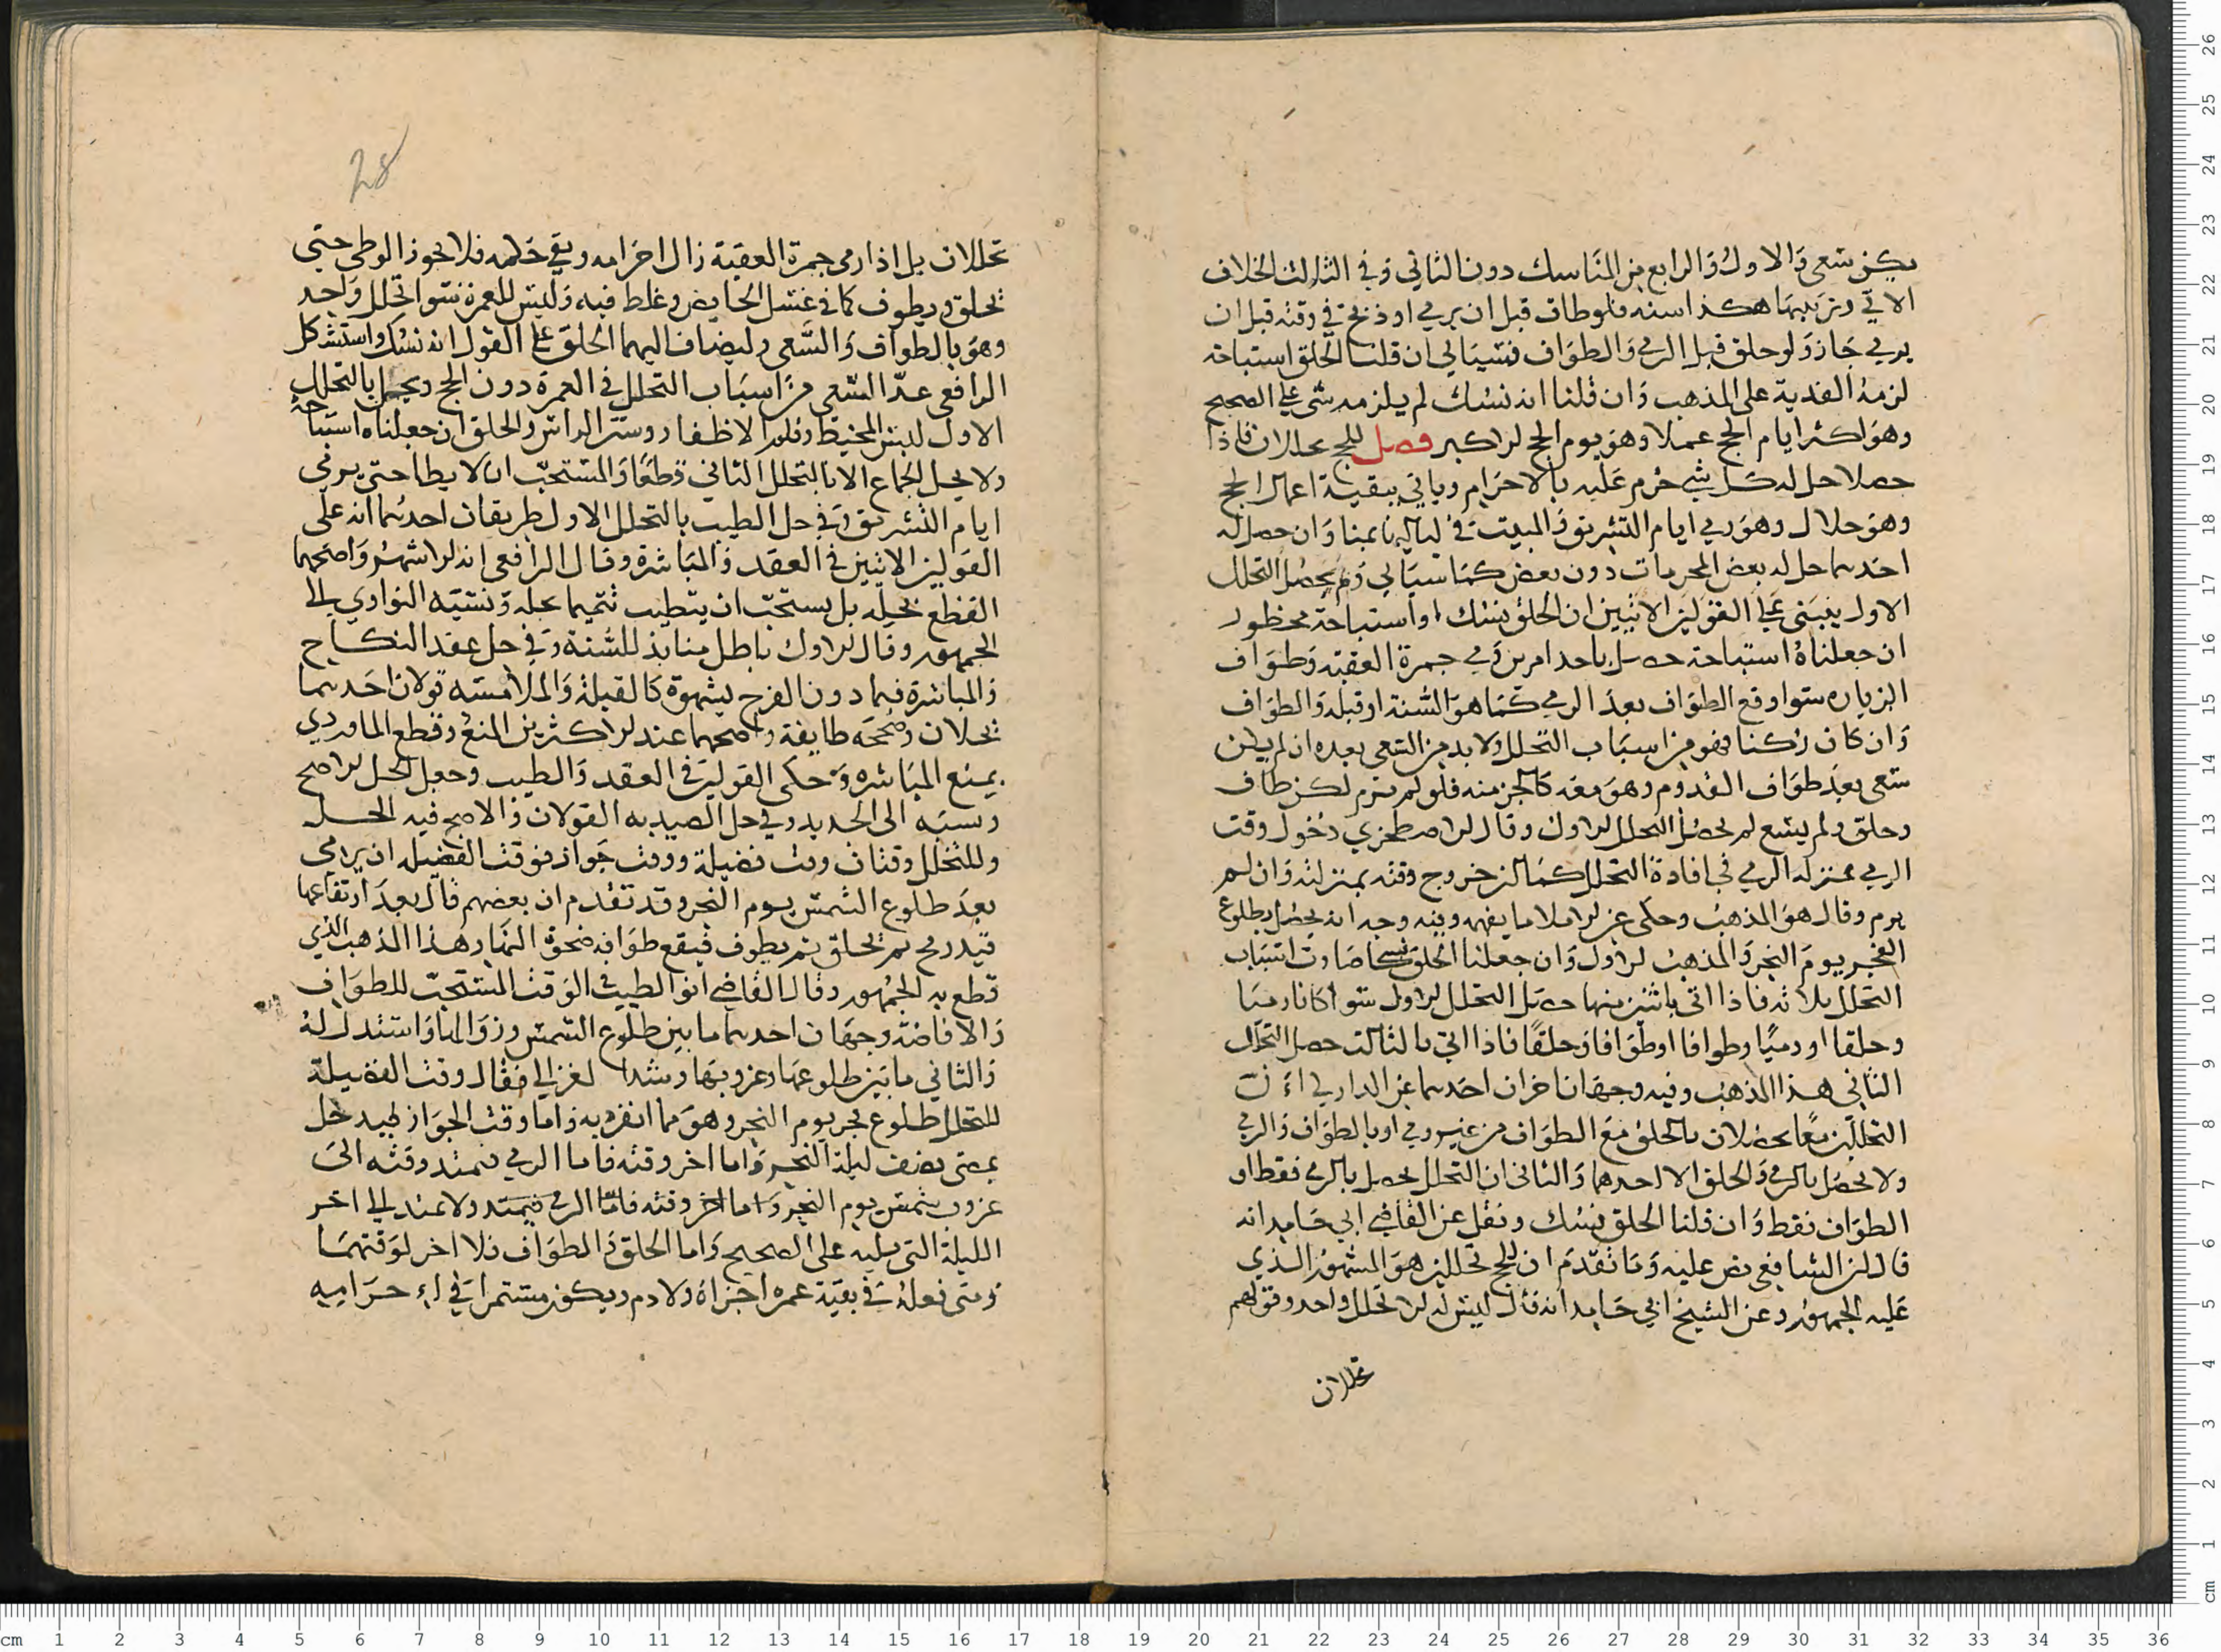 يكن سعى والاول والرابع من المناسك دون الثاني وفي الثالث الخلاف
الاتي وترتيبها هكذا سنه فلو طاف قبل ان يرمي او ذبح في وقته قبل ان
يرمي جاز ولو حلق قبل الرمي والطواف فسياتي ان قلنا الحلق استباحة
لزمه الفدية على المذهب وان قلنا انه نسك لم يلزمه شي على الصحيح
وهو اكثر ايام الحج عملا وهو يوم الحج الاكبر فصل للحج تحللان فاذا
حصلا حل له كل شي حرم عليه بالاحرام وياتي ببقية اعمال الحج
وهو حلال وهو رمي ايام التشريق والمبيت في لياليها بمنا وان حصل له
احدهما حل له بعض المحرمات دون بعض كما سياتي وبم يحصل التحلل
الاول ينبني على القولين الاتيين ان الحلق نسك او استباحة محظور
ان جعلناه استباحة حصل باحد امرين رمي جمرة العقبة وطواف
الزياره سوا وقع الطواف بعد الرمي كما هو السنة او قبله والطواف
وان كان ركنا فهو من اسباب التحلل ولا بد من السعي بعده ان لم يكن
سعى بعد طواف القدوم وهو معه كالجز منه فلو لم يرم لكن طاف
وحلق ولم يسع لم يحصل التحلل الاول وقال الاصطخري دخول وقت
الرمي بمنزلة الرمي في افادة التحلل كما ان خروج وقته بمنزلته وان لم
يرم وقال هو المذهب وحكى عن الاملا ما يفهمه وفيه وجه انه يحصل بطلوع
الفجر يوم النحر والمذهب الاول وان جعلنا الحلق نسكا صارت اسباب
التحلل ثلاثه فاذا اتى باثنين منها حصل التحلل الاول سوا كانا رميا
وحلقا او رميا وطوافا او طوافا وحلقا فاذا اتى بالثالث حصل التحلل
الثاني هذا المذهب وفيه وجهان اخران احدهما عن الداركي ان
التحللين معا يحصلان بالحلق مع الطواف من غير رمي او بالطواف والرمي
ولا يحصل بالرمي والحلق الا احدهما والثاني ان التحلل يحصل بالرمي فقط او
الطواف فقط وان قلنا الحلق نسك ونقل عن القاضي ابي حامد انه
قال ان الشافعي نص عليه وما تقدم ان للحج تحللين هو المشهور الذي
عليه الجمهور وعن الشيخ ابي حامد انه قال ليس له الا تحلل واحد وقولهم
تحللان
28
تحللان بل اذا رمى جمرة العقبة زال احرامه وبقي حكمه فلا يجوز الوطي حتى
يحلق ويطوف كما في غسل الحايض وغلط فيه وليس للعمرة سوا تحلل واحد
وهو بالطواف والسعي وليضاف اليهما الحلق على القول انه نسك واستشكل
الرافعي عد السعي من اسباب التحلل في العمرة دون الحج ويحل بالتحلل
الاول لبس المخيط وقلم الاظفار وستر الراس والحلق ان جعلناه استباحة
ولا يحل الجماع الا بالتحلل الثاني قطعا والمستحب ان لا يطا حتى يرمي
ايام التشريق وفي حل الطيب بالتحلل الاول طريقان احدهما انه على
القولين الاتيين في العقد والمباشرة وقال الرافعي انه الاشهر واصحهما
القطع بحله بل يستحب ان يتطيب تتميما لحله ونسبه النواوي الى
الجمهور وقال الاول باطل منابذ للسنة وفي حل عقد النكاح
والمباشرة فيما دون الفرج بشهوة كالقبلة والملامسه قولان احدهما
يحلان وصححه طايفة واصحهما عند الاكثرين المنع وقطع الماوردي
بمنع المباشره وحكى القولين في العقد والطيب وجعل الحل الاصح
ونسبه الى الجديد وفي حل الصيد به القولان والاصح فيه الحل
وللتحلل وقتان وقت فضيلة ووقت جواز فوقت الفضيله ان يرمي
بعد طلوع الشمس يوم النحر وقد تقدم ان بعضهم قال بعد ارتفاعها
قيد رمح ثم يحلق ثم يطوف فيقع طوافه ضحوة النهار هذا المذهب الذي
قطع به الجمهور وقال القاضي ابو الطيب في الوقت المستحب للطواف
والافاضه وجهان احدهما ما بين طلوع الشمس وزوالها واستدل له
والثاني ما بين طلوعها وغروبها وشذ الغزالي فقال وقت الفضيلة
للتحلل طلوع فجر يوم النحر وهو مما انفرد به واما وقت الجواز فيدخل
بمضي نصف ليلة النحر واما اخر وقته فاما الرمي فيمتد وقته الى
غروب شمس يوم النحر واما اخر وقته فاما الرمي فيمتد ولا يمتد الى اخر
الليلة التي تليه على الصحيح واما الحلق والطواف فلا اخر لوقتهما
ومتى فعله في بقية عمره اجزاه ولا دم ويكون مستمرا في احراميه